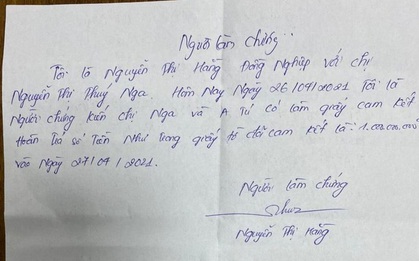 Người làm chứng
Tôi là Nguyễn Thị Hằng Đồng Nghiệp với chị
Nguyễn Thị Thuý Nga. Hôm Nay Ngày 26/04/2021 Tôi là
Người chứng kiến chị Nga và A Tú có làm giấy cam kết
Hoàn Trả số Tiền Như Trong giấy tờ đã cam kết là: 1.000.000.000
vào Ngày 27/04/2021.
Người làm chứng
Nguyễn Thị Hằng